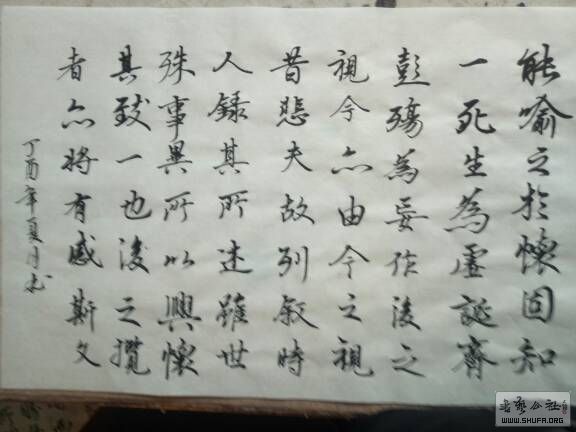 能喻之於懷固知
一死生為虛誕齊
彭殤為妄作後之
視今亦由今之視
昔悲夫故列敘時
人錄其所述雖世
殊事異所以興懷
其致一也後之攬
者亦將有感斯文
丁酉年夏月书
WWW.SHUFA.ORG